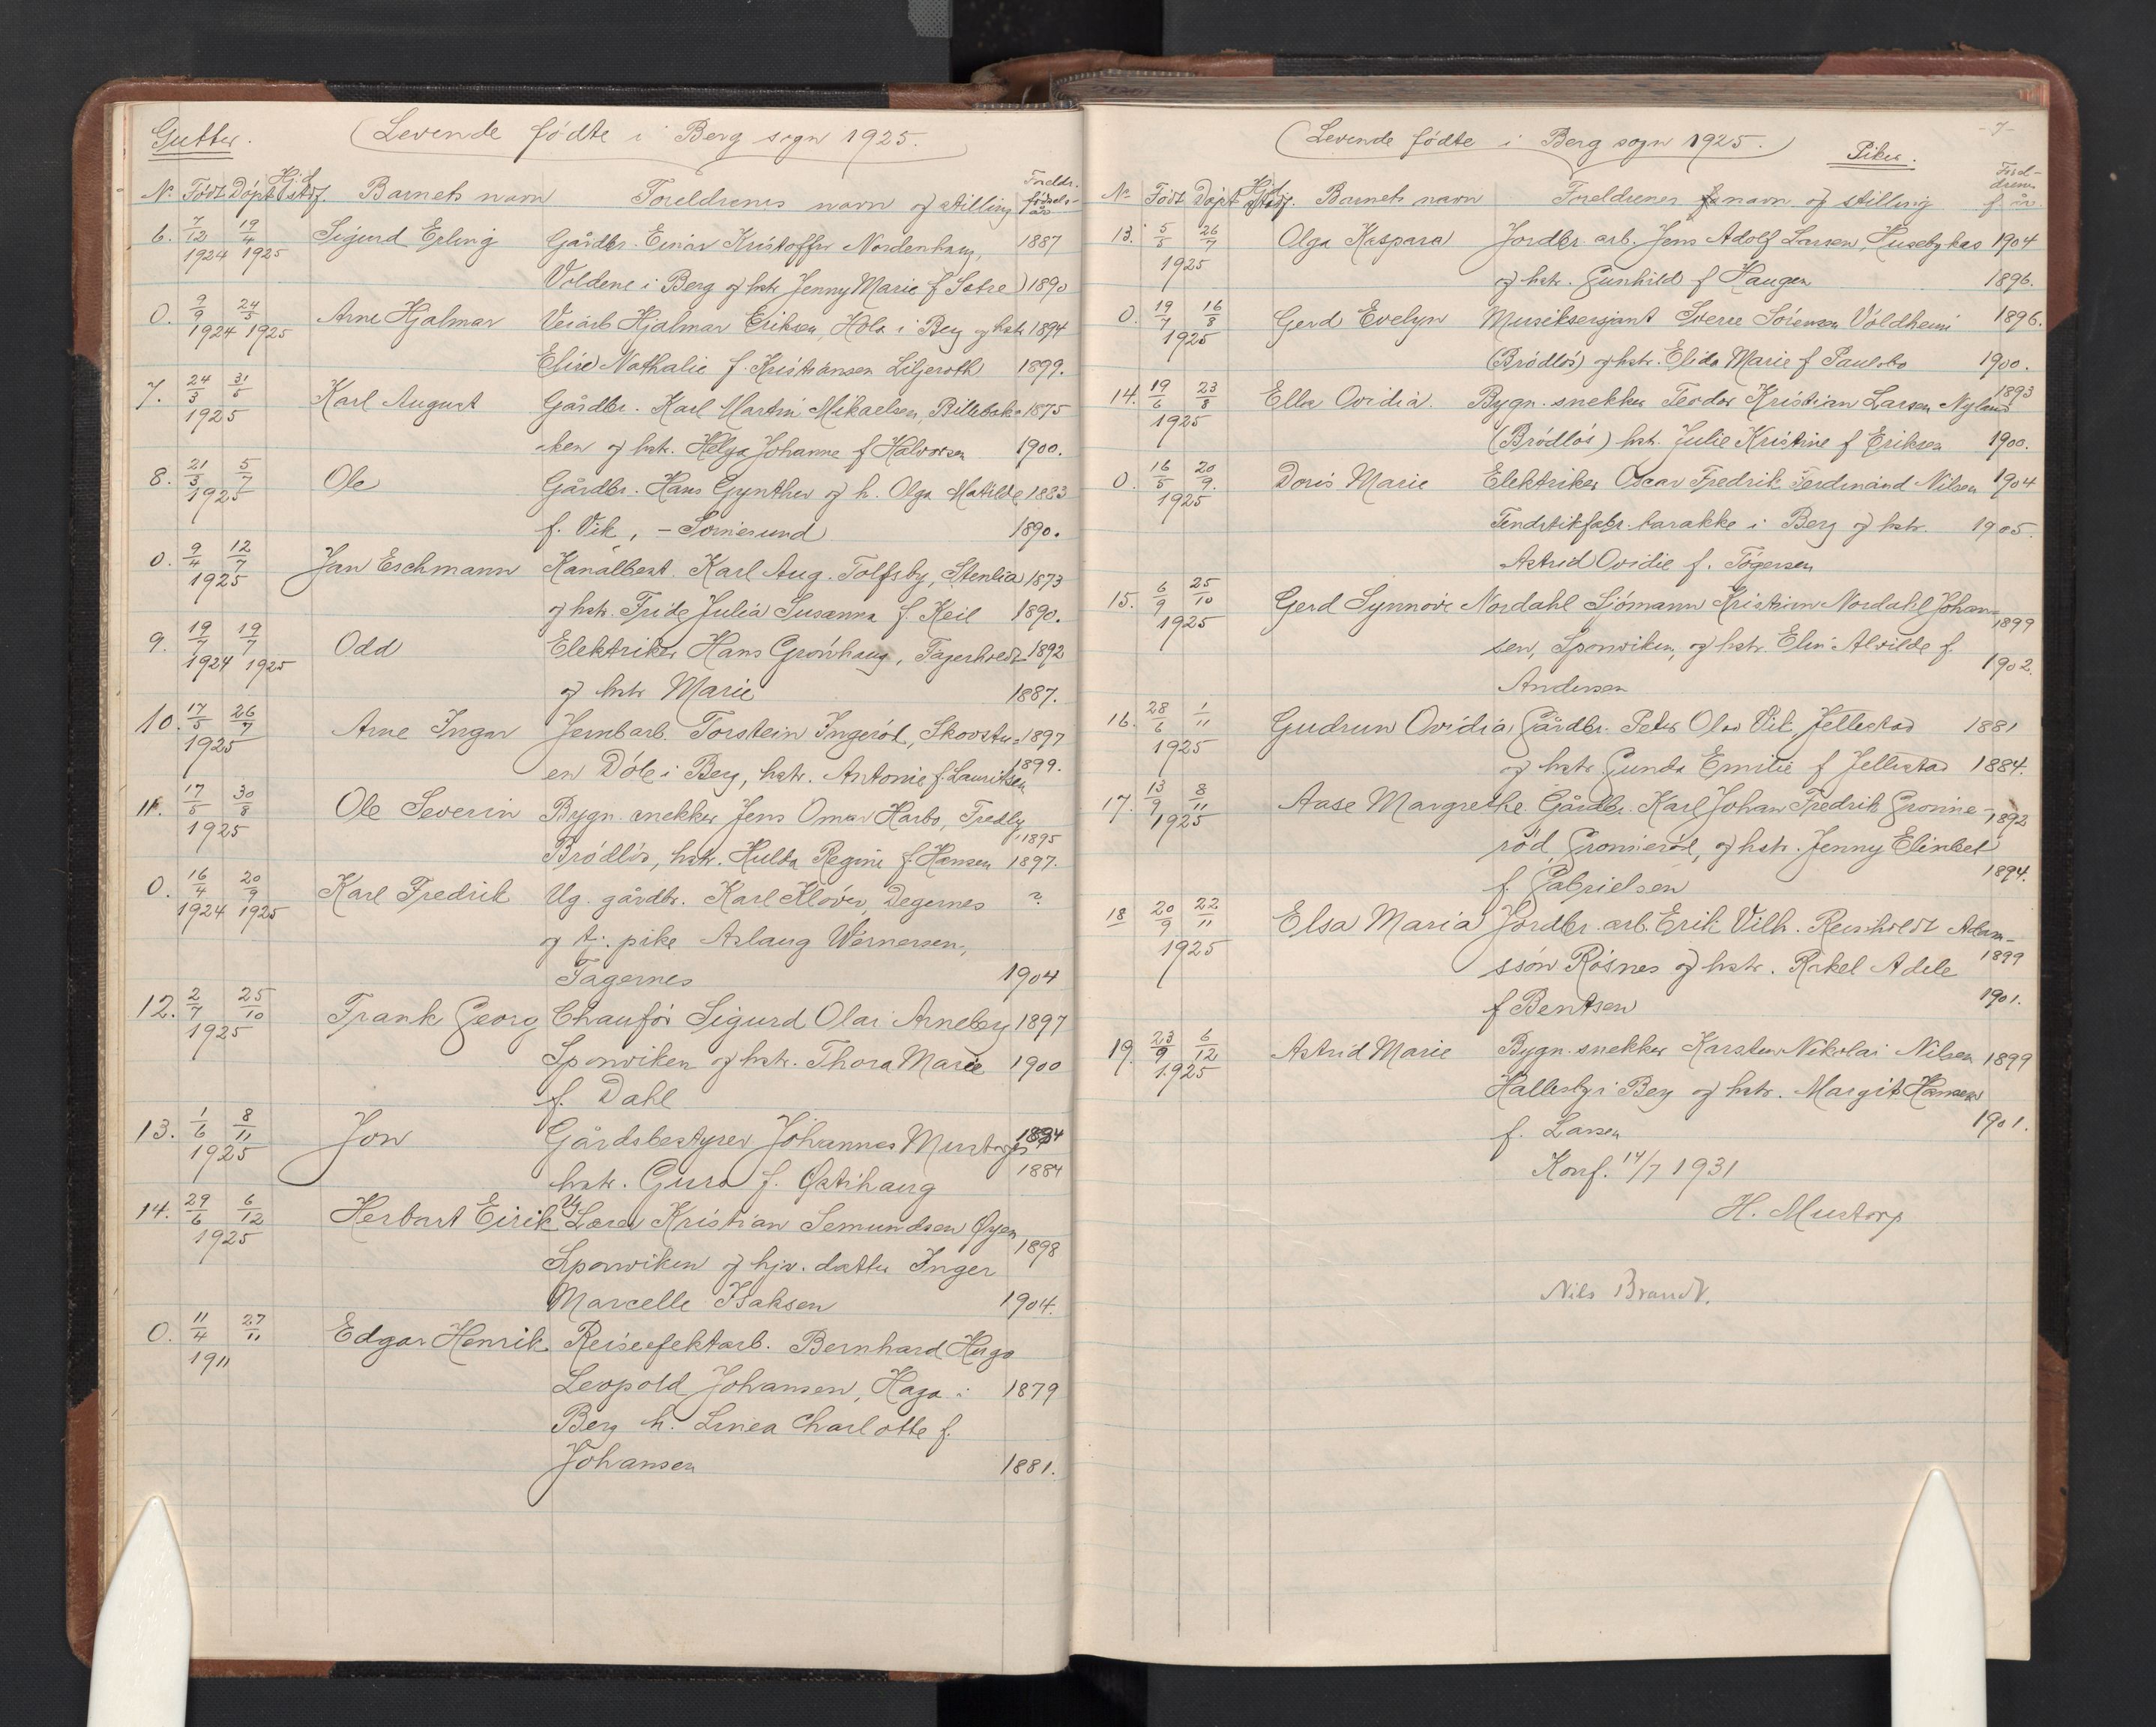 Gutter.
(Levende fødte i Berg sogn 1925.)
Nr. Født Døpt Hj.d. Barnets navn Foreldrenes navn og stilling Foreldr. fødsels-år
6. 7/12 1924 19/4 1925 Sigurd Erling Gårdbr. Einar Kristoffer Nordenhaug, 1887
Voldene i Berg og hstr. Jenny Marie f. Sætre 1890
0. 9/9 1924 24/5 1925 Arne Hjalmar Veiarb Hjalmar Eriksen, Hola i Berg og hstr. 1894
Elise Nathalie f. Kristiansen Liljeroth 1899.
7. 24/3 31/5 1925 Karl August Gårdbr. Karl Martin Mikaelsen, Billebak= 1875
ken og hstr. Helga Johanne f Halvorsen 1900.
8. 21/3 5/7 1925 Ole Gårdbr. Hans Gynther og h. Olga Matilde 1883
f. Vik, - Sørnesund 1890.
0. 9/4 12/7 1925 Jan Eschmann Kanalbest. Karl Aug. Tolfsby, Stenlia 1873
og hstr. Fride Julia Susanna f. Keil 1890.
9. 19/7 1924 19/7 1925 Odd Elektriker Hans Grønhaug, Fagerholdt 1892
og hstr Marie 1887.
10. 17/5 26/7 1925 Arne Ingar Jernbarb. Torstein Ingerød, Skovstu= 1897
en Døle i Berg, hstr. Antonie f. Lauritsen 1899.
11. 17/5 30/8 1925 Ole Severin Bygn. snekker Jens Omar Harbo, Fredly 1895
Brødløs, hstr. Hulda Regine f. Hansen 1897.
0. 16/4 1924 20/9 1925 Karl Fredrik Ug. gårdbr. Karl Kløver, Degernes ?
og tj. pike Aslaug Wernersen,
Fagernes 1904
12. 2/7 25/10 1925 Frank Georg Chaufør Sigurd Olai Arneberg 1897
Sponviken og hstr. Thora Marie 1900
f. Dahl
13. 1/6 8/11 1925 Jon Gårdsbestyrer Johannes Mustorp 1884
hstr. Guro f. Østihaug 1884
14. 29/6 6/12 1925 Herbart Eirik Ug Lærer Kristian Semundsen Øyen 1898
Sponviken og hjv. datter Inger
Marcelle Isaksen 1904.
0. 11/4 27/11 1911 Edgar Henrik Reiseefektarb. Bernhard Hugo
Leopold Johansen, Haga i 1879
Berg h. Linea Charlotte f.
Johansen 1881.
- 7 -
(Levende fødte i Berg sogn 1925.) Piker.
Nr. Født Døpt Hj.d. Barnets navn Foreldrenes navn og stilling Forel-drenes f. år.
13. 5/5 26/7 1925 Olga Kaspara Jordbr. arb. Jens Adolf Larsen, Husebykas 1904
og hstr. Gunhild f Haugen 1896.
0. 19/7 16/8 1925 Gerd Evelyn Musiksersjant Sverre Sørensen Voldheim 1896.
(Brødløs) og hstr. Elida Marie f Paulsbo 1900.
14. 19/6 23/8 1925 Ella Ovidia. Bygn. snekker Teodor Kristian Larsen Nyland 1893
(Brødløs) hstr. Julie Kristine f Eriksen 1900.
0. 16/5 20/9. 1925 Doris Marie Elektriker Oscar Fredrik Ferdinand Nilsen 1904
Fendstikfabr. barakke i Berg og hstr. 1905.
Astrid Ovidie f. Tøgersen
15. 6/9 25/10 1925 Gerd Synnøve Nordahl Sjømann Kristian Nordahl Johan- 1899
sen, Sponviken, og hstr. Elin Alvilde f. 1902.
Andersen
16. 28/6 1/11 1925 Gudrun Ovidia Gårdbr. Peter Olav Vik Jellestad 1881
og hstr Gunda Emilie f Jellestad 1884.
17. 13/9 8/11 1925 Aase Margrethe Gårdbr. Karl Johan Fredrik Grønne- 1892
rød, Grønnerød, og hstr. Jenny Elinbet
f. Gabrielsen 1894.
18 20/9 22/11 1925 Elsa Maria Jordbr. arb. Erik Vilh. Reinholdt Adam-
sson Røsnes og hstr. Rakel Adele 1899
f Bentsen 1901.
19. 23/9 6/12 1925 Astrid Marie Bygn. snekker Karsten Nikolai Nilsen 1899
Hallesby i Berg og hstr. Margit Hansen
f. Larsen 1901.
Konf. 14/7 1931
H. Mustorp
Nils Brandt.